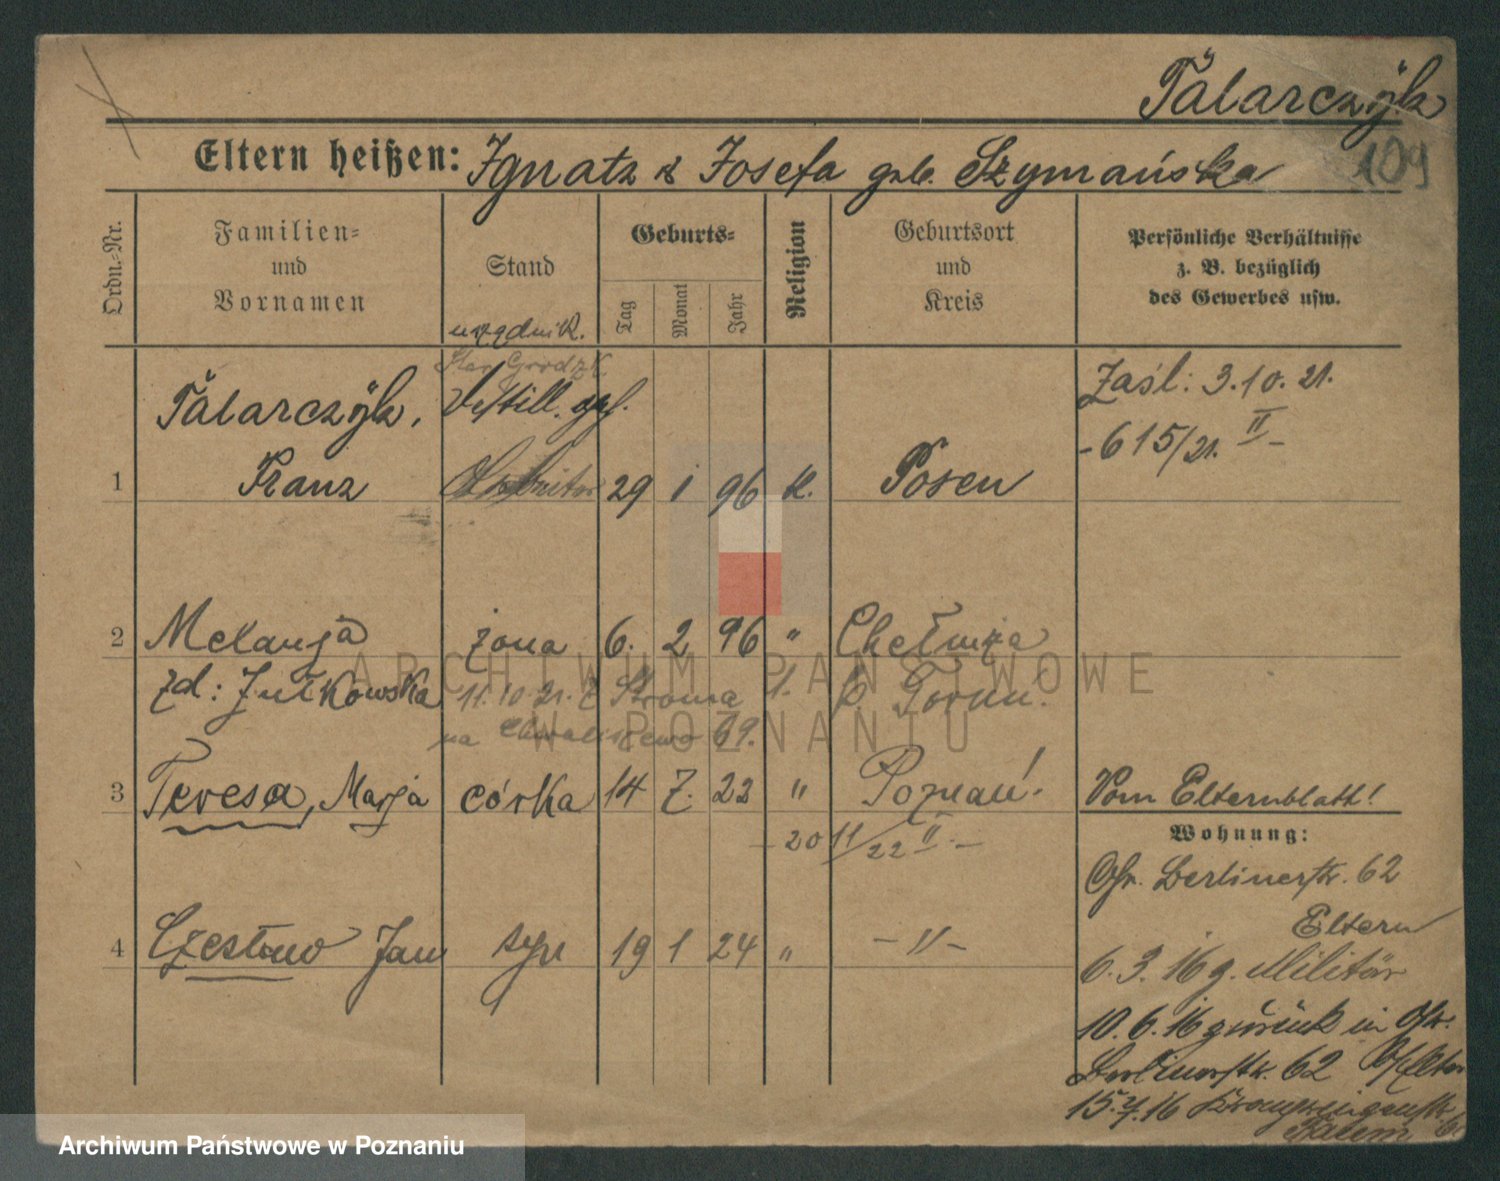 Tălarczÿk
109
Eltern heißen: Ignatz & Josefa geb. Szymańska
Ordn.-Nr.
Familien- und Vornamen
Stand
Geburts-
Tag
Monat
Jahr
Religion
Geburtsort und Kreis
Persönliche Verhältnisse z. B. bezüglich des Gewerbes usw.
urzędnik.
Star. Grodzk.
1 Tălarczÿk, Franz
29 1 96 k. Posen
Zaśl: 3.10.21.
-615/21. II-
2 Melanja żona 6. 2 96 " Chełmża
zd: Julkowska 11.10.21. Z Stroma 1. p. Toruń.
na Chwaliszewo 69.
3 Teresa, Marja córka 14 7. 22 " Poznań!
- 20 11/22 II. -
Vom Elternblatt!
Wohnung:
Ob. Berlinerstr. 62
Eltern
4 Czesław Jan syn 19 1 24 " -"-
6. 3. 16 z. Militär
10. 6. 16 zurück in Ob.
Berlinerstr. 62
15. 7. 16 Kronprinzenstr.
ARCHIWUM PAŃSTWOWE
W POZNANIU
Archiwum Państwowe w Poznaniu